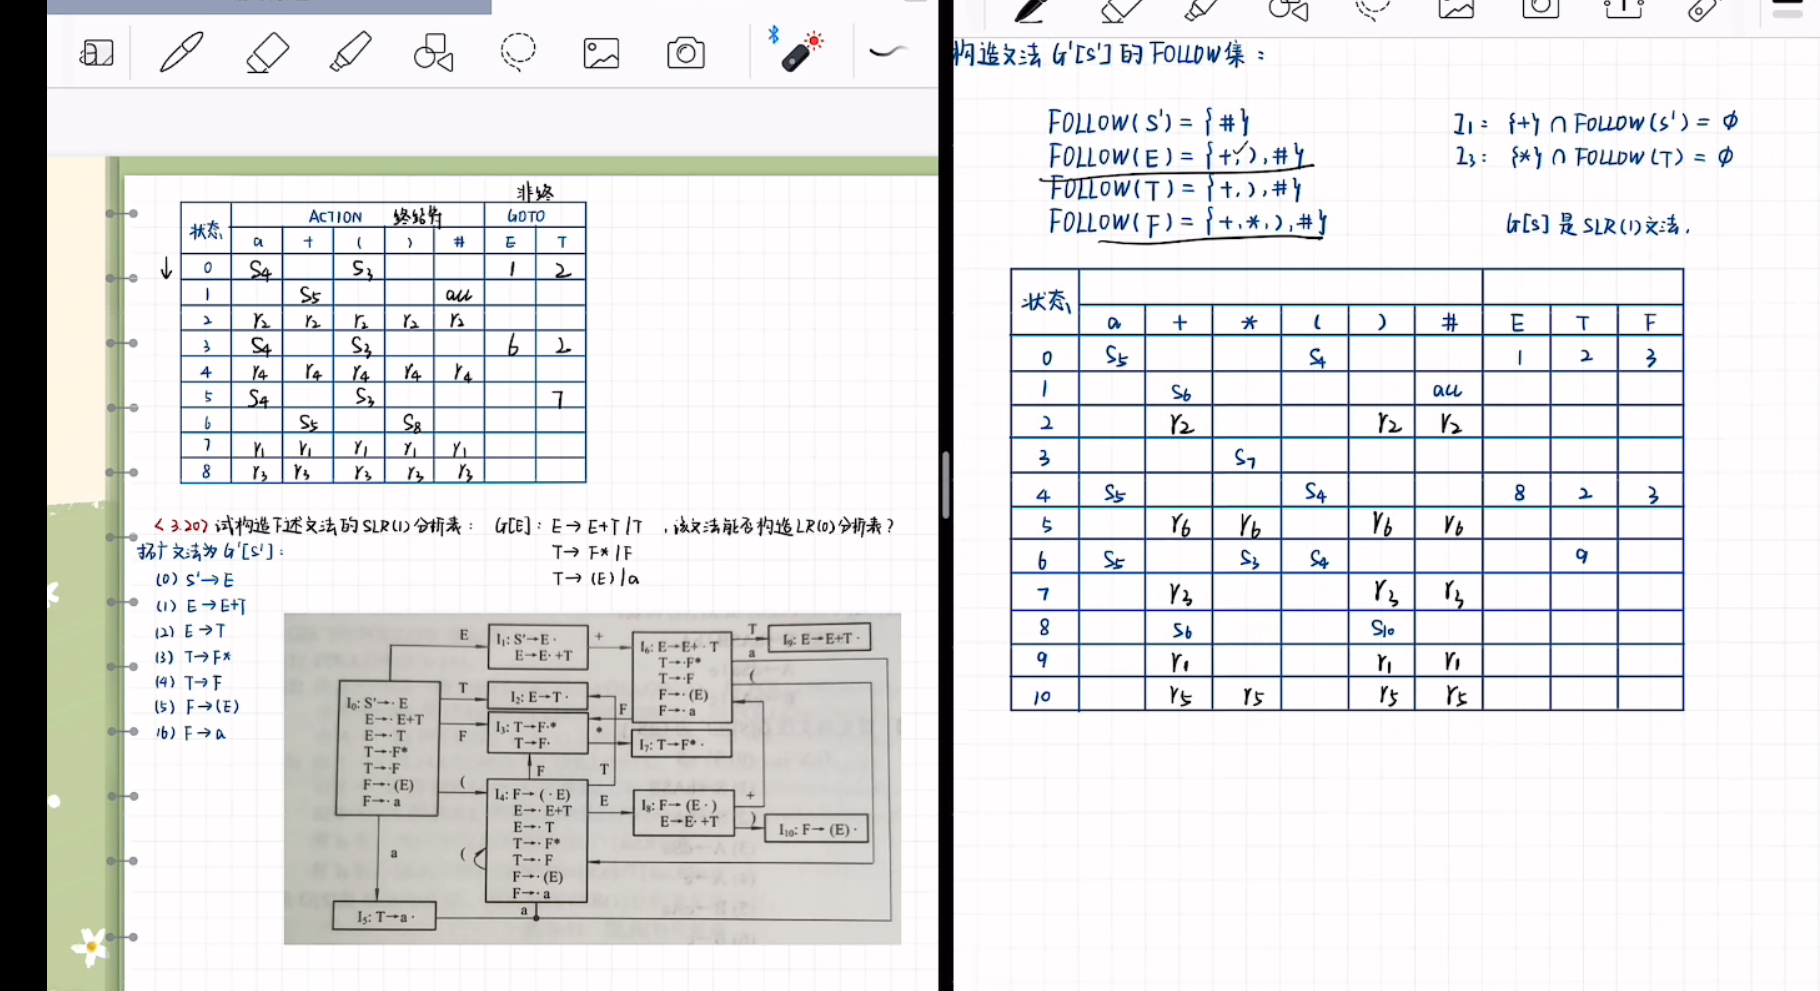 非终
状态 ACTION 终结符 GOTO
a + ( ) # E T
0 S4 S3 1 2
1 S5 acc
2 r2 r2 r2 r2 r2
3 S4 S3 6 2
4 r4 r4 r4 r4 r4
5 S4 S3 7
6 S5 S8
7 r1 r1 r1 r1 r1
8 r3 r3 r3 r3 r3
<3.20> 试构造下述文法的SLR(1)分析表: G[E]: E→E+T/T ,该文法能否构造LR(0)分析表?
T→F*/F
T→(E)/a
拓广文法为G'[S']:
(0) S'→E
(1) E→E+T
(2) E→T
(3) T→F*
(4) T→F
(5) F→(E)
(6) F→a
I0: S'→·E
E→·E+T
E→·T
T→·F*
T→·F
F→·(E)
F→·a
E
T
F
(
a
I1: S'→E·
E→E·+T
+
I2: E→T·
I3: T→F·*
T→F·
F
*
F
T
I4: F→(·E)
E→·E+T
E→·T
T→·F*
T→·F
F→·(E)
F→·a
(
E
a
I5: T→a·
I6: E→E+·T
T→·F*
T→·F
F→·(E)
F→·a
T
a
(
I9: E→E+T·
I7: T→F*·
I8: F→(E·)
E→E·+T
+
)
I10: F→(E)·
构造文法G'[S']的FOLLOW集:
FOLLOW(S') = {#}
FOLLOW(E) = {+,),#}
FOLLOW(T) = {+,),#}
FOLLOW(F) = {+,*,),#}
I1: {+}∩FOLLOW(S') = ∅
I3: {*}∩FOLLOW(T) = ∅
G[S]是SLR(1)文法.
状态
a + * ( ) # E T F
0 S5 S4 1 2 3
1 S6 acc
2 r2 r2 r2
3 S7
4 S5 S4 8 2 3
5 r6 r6 r6 r6
6 S5 S3 S4 9
7 r3 r3 r3
8 S6 S10
9 r1 r1 r1
10 r5 r5 r5 r5